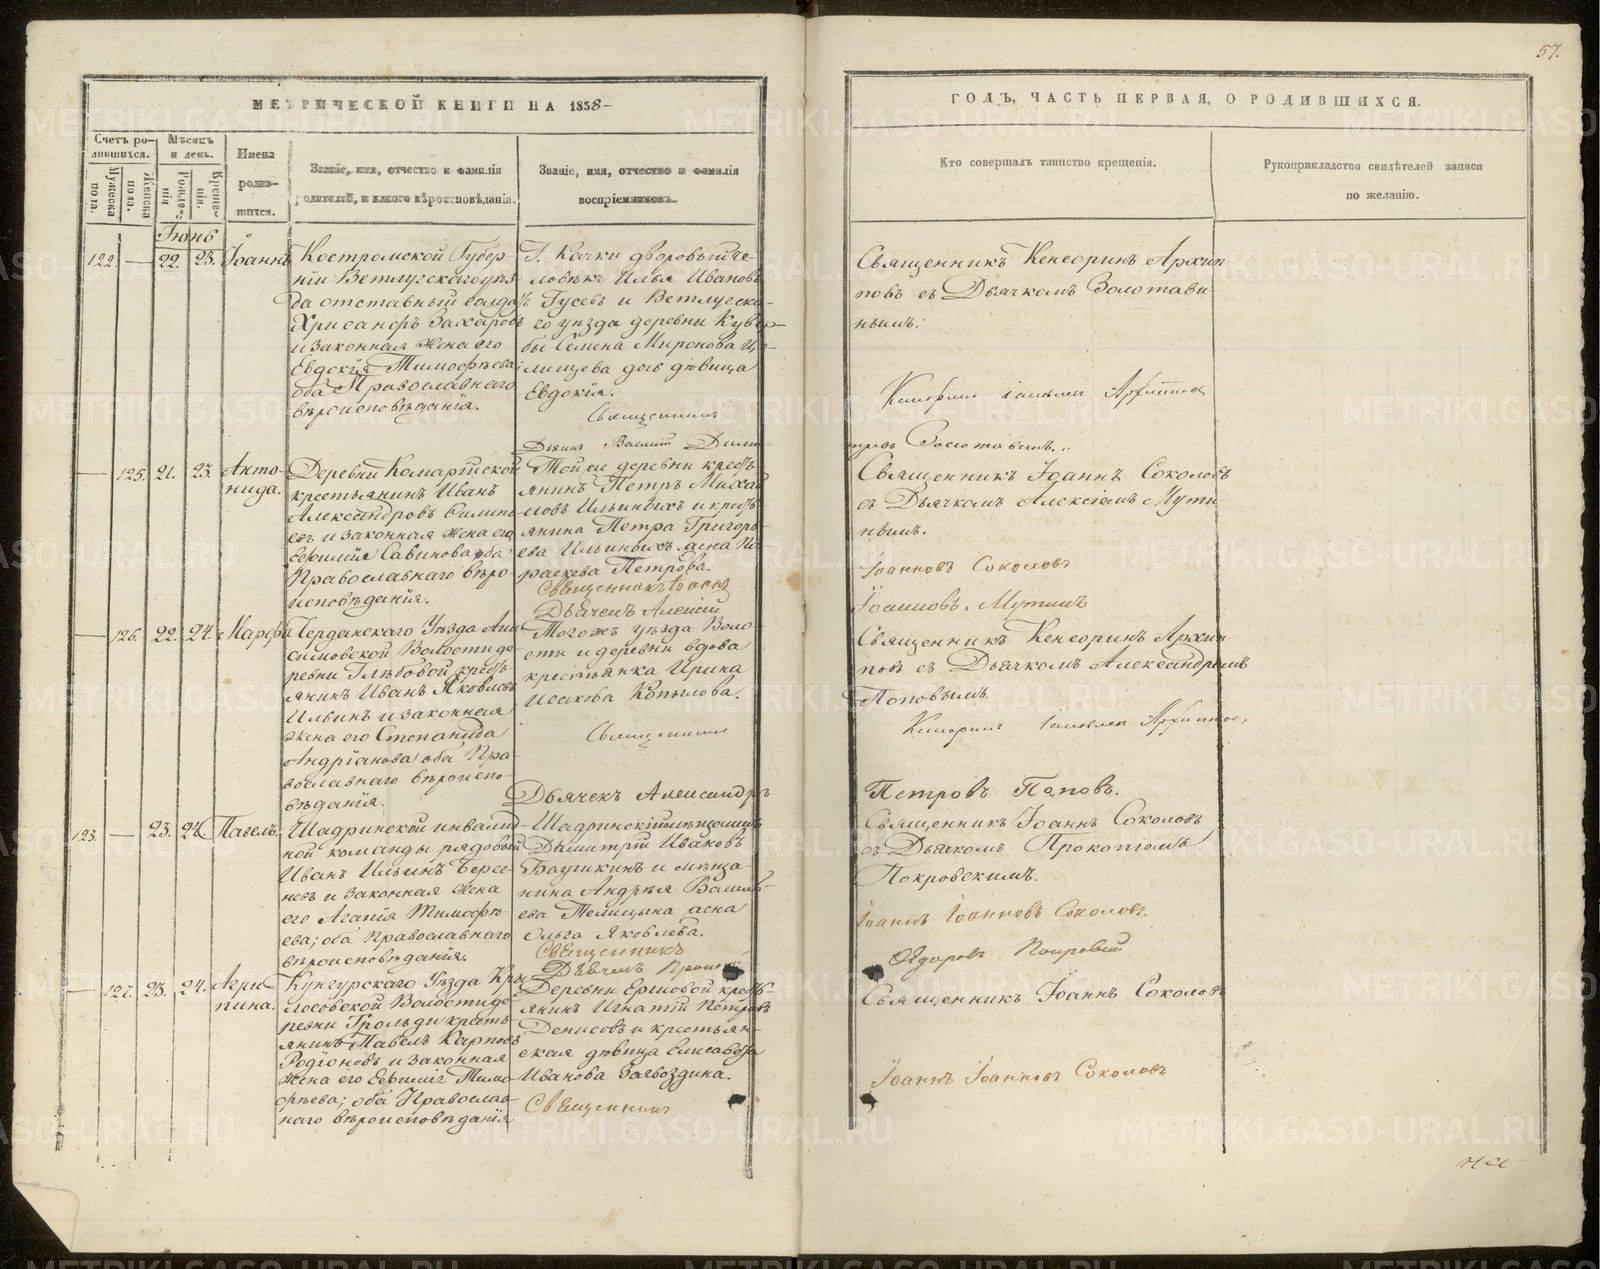 57.
МЕТРИЧЕСКОЙ КНИГИ НА 1858
ГОДЪ, ЧАСТЬ ПЕРВАЯ, О РОДИВШИХСЯ.
Счетъ ро-
дившихся.
Мужеска
пола.
Женска
пола.
Мѣсяцъ
и день.
Рожде-
нія.
Креще-
нія.
Имена
родив-
шихся.
Званіе, имя, отчество и фамилія
родителей, и какого вѣроисповѣданія.
Званіе, имя, отчество и фамилія
воспріемниковъ.
Кто совершалъ таинство крещенія.
Рукоприкладство свидѣтелей записи
по желанію.
Іюнь
122. — 22. 23. Іоаннъ
Костромской Губер-
ніи Ветлугскаго уѣз-
да отставный солдатъ
Хрисанфъ Захаровъ
и законная жена его
Евдокія Тимофѣева
оба Православнаго
вѣроисповѣданія.
Г. Качки дворовый че-
ловѣкъ Илья Ивановъ
Гусевъ и Ветлугска-
го уѣзда деревни
Семена Миронова
дочь дѣвица
Евдокія.
Священникъ
Священникъ Кенсоринъ Архип-
повъ съ Дьячкомъ Золотави-
нымъ.
— 125. 21. 23. Анто-
нида.
Деревни
крестьянинъ Иванъ
Александровъ
и законная жена его
Савинова оба
Православнаго вѣро
исповѣданія.
Той же деревни кресть-
янинъ Петръ Михай
ловъ Ильиныхъ и кресть-
янина Петра Григорь-
ева Ильиныхъ жена Па-
раскева Петрова.
Священникъ Іоаннъ
Дьячекъ Алексій
Священникъ Іоаннъ Соколовъ
съ Дьячкомъ Алексіемъ Мути
нымъ.
Іоанновъ Соколовъ
Іоанновъ. Мутинъ
— 126. 22. 24. Марфа
Чердынскаго Уѣзда Ани
симовской Волости де-
ревни Глѣбовой кресть-
янинъ Иванъ Яковлевъ
Ильинъ и законная
жена его Степанида
Андріанова оба Пра-
вославнаго вѣроиспо-
вѣданія.
Тогожъ уѣзда Воло-
сти и деревни вдова
крестьянка Ирина
Исакова Копылова.
Священникъ
Дьячекъ Александръ
Священникъ Кенсоринъ Архип-
повъ съ Дьячкомъ Александромъ
Поповымъ.
Петровъ Поповъ.
123. — 23. 24. Павелъ.
Шадринской инвалид-
ной команды рядовый
Иванъ Ильинъ Берсе-
невъ и законная жена
его Агапія Тимофѣ-
ева; оба православнаго
вѣроисповѣданія.
Шадринскій мѣщанинъ
Димитрій Ивановъ
Баушкинъ и мѣща-
нина Андрея Василь-
ева Телицына жена
Ольга Яковлева.
Священникъ
Дьячекъ Прокопій
Священникъ Іоаннъ Соколовъ
съ Дьячкомъ Прокопіемъ
Покровскимъ.
Іоаннъ Іоанновъ Соколовъ.
Ѳедоровъ Покровскій
— 127. 23. 24. Агри-
пина.
Кунгурскаго Уѣзда Кры
лосовской Волости де-
ревни кресть-
янинъ Павелъ Карповъ
Родіоновъ и законная
жена его Ефимія Тимо-
фѣева; оба Православ-
наго вѣроисповѣданія
Деревни Ершовой кресть-
янинъ Игнатій Петровъ
Денисовъ и крестьян-
ская дѣвица Елисавета
Иванова Загвоздина.
Священникъ
Священникъ Іоаннъ Соколовъ
Іоаннъ Іоанновъ Соколовъ